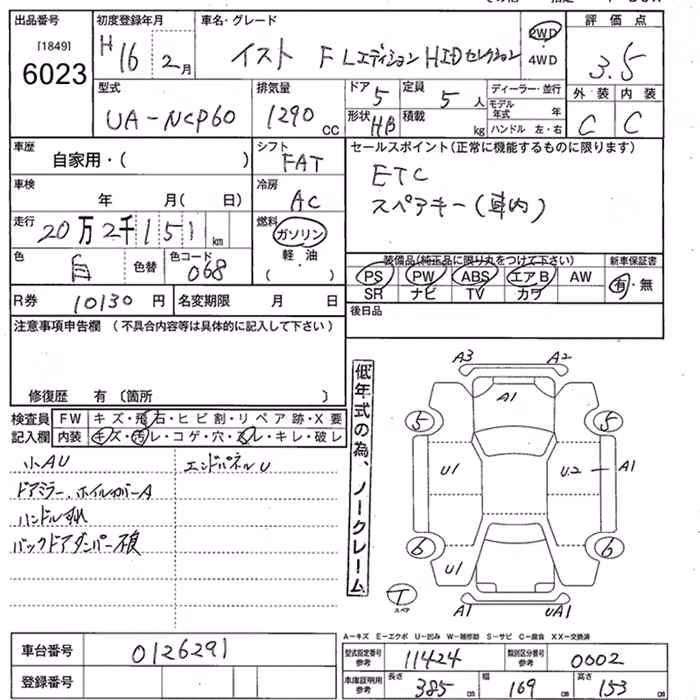 出品番号
[1849]
6023
初度登録年月
H16 2月
車名・グレード
イスト F Lエディション HIDセレクション
2WD
4WD
評価点
3.5
型式
UA-NCP60
排気量
1290 CC
ドア 5
定員 5人
形状 HB
積載 kg
ディーラー・並行
モデル年式 年
ハンドル 左・右
外装 内装
C C
車歴
自家用・( )
シフト
FAT
セールスポイント(正常に機能するものに限ります)
ETC
スペアキー(車内)
車検
年 月( 日)
冷房
AC
走行
20万2千151km
燃料
ガソリン
軽・油
( )
色
白
色替
色コード
068
装備品(純正品に限り丸をつけて下さい)
PS PW ABS エアB AW
SR ナビ TV カワ
新車保証書
有・無
R券 10130円
名変期限 月 日
後日品
注意事項申告欄(不具合内容等は具体的に記入して下さい)
修復歴 有〔箇所 〕
検査員
記入欄
FW キズ・飛石・ヒビ割・リペア跡・X要
内装 キズ・汚レ・コゲ・穴・スレ・キレ・破レ
小AU
エンドパネルU
ドアミラー、ホイルカバーA
ハンドルすれ
バックドアダンパー不良
低年式の為、ノークレーム
A3 A2
A1
5 5
U1 U2 A1
6 6
U1
T
スペア
A1 UA1
A-キズ E-エクボ U-凹み W-補修跡 S-サビ C-腐食 XX-交換済
車台番号
0126291
登録番号
型式指定番号
参考
11424
類別区分番号
参考
0002
車庫証明用
参考
長さ 385cm
幅 169cm
高さ 153cm